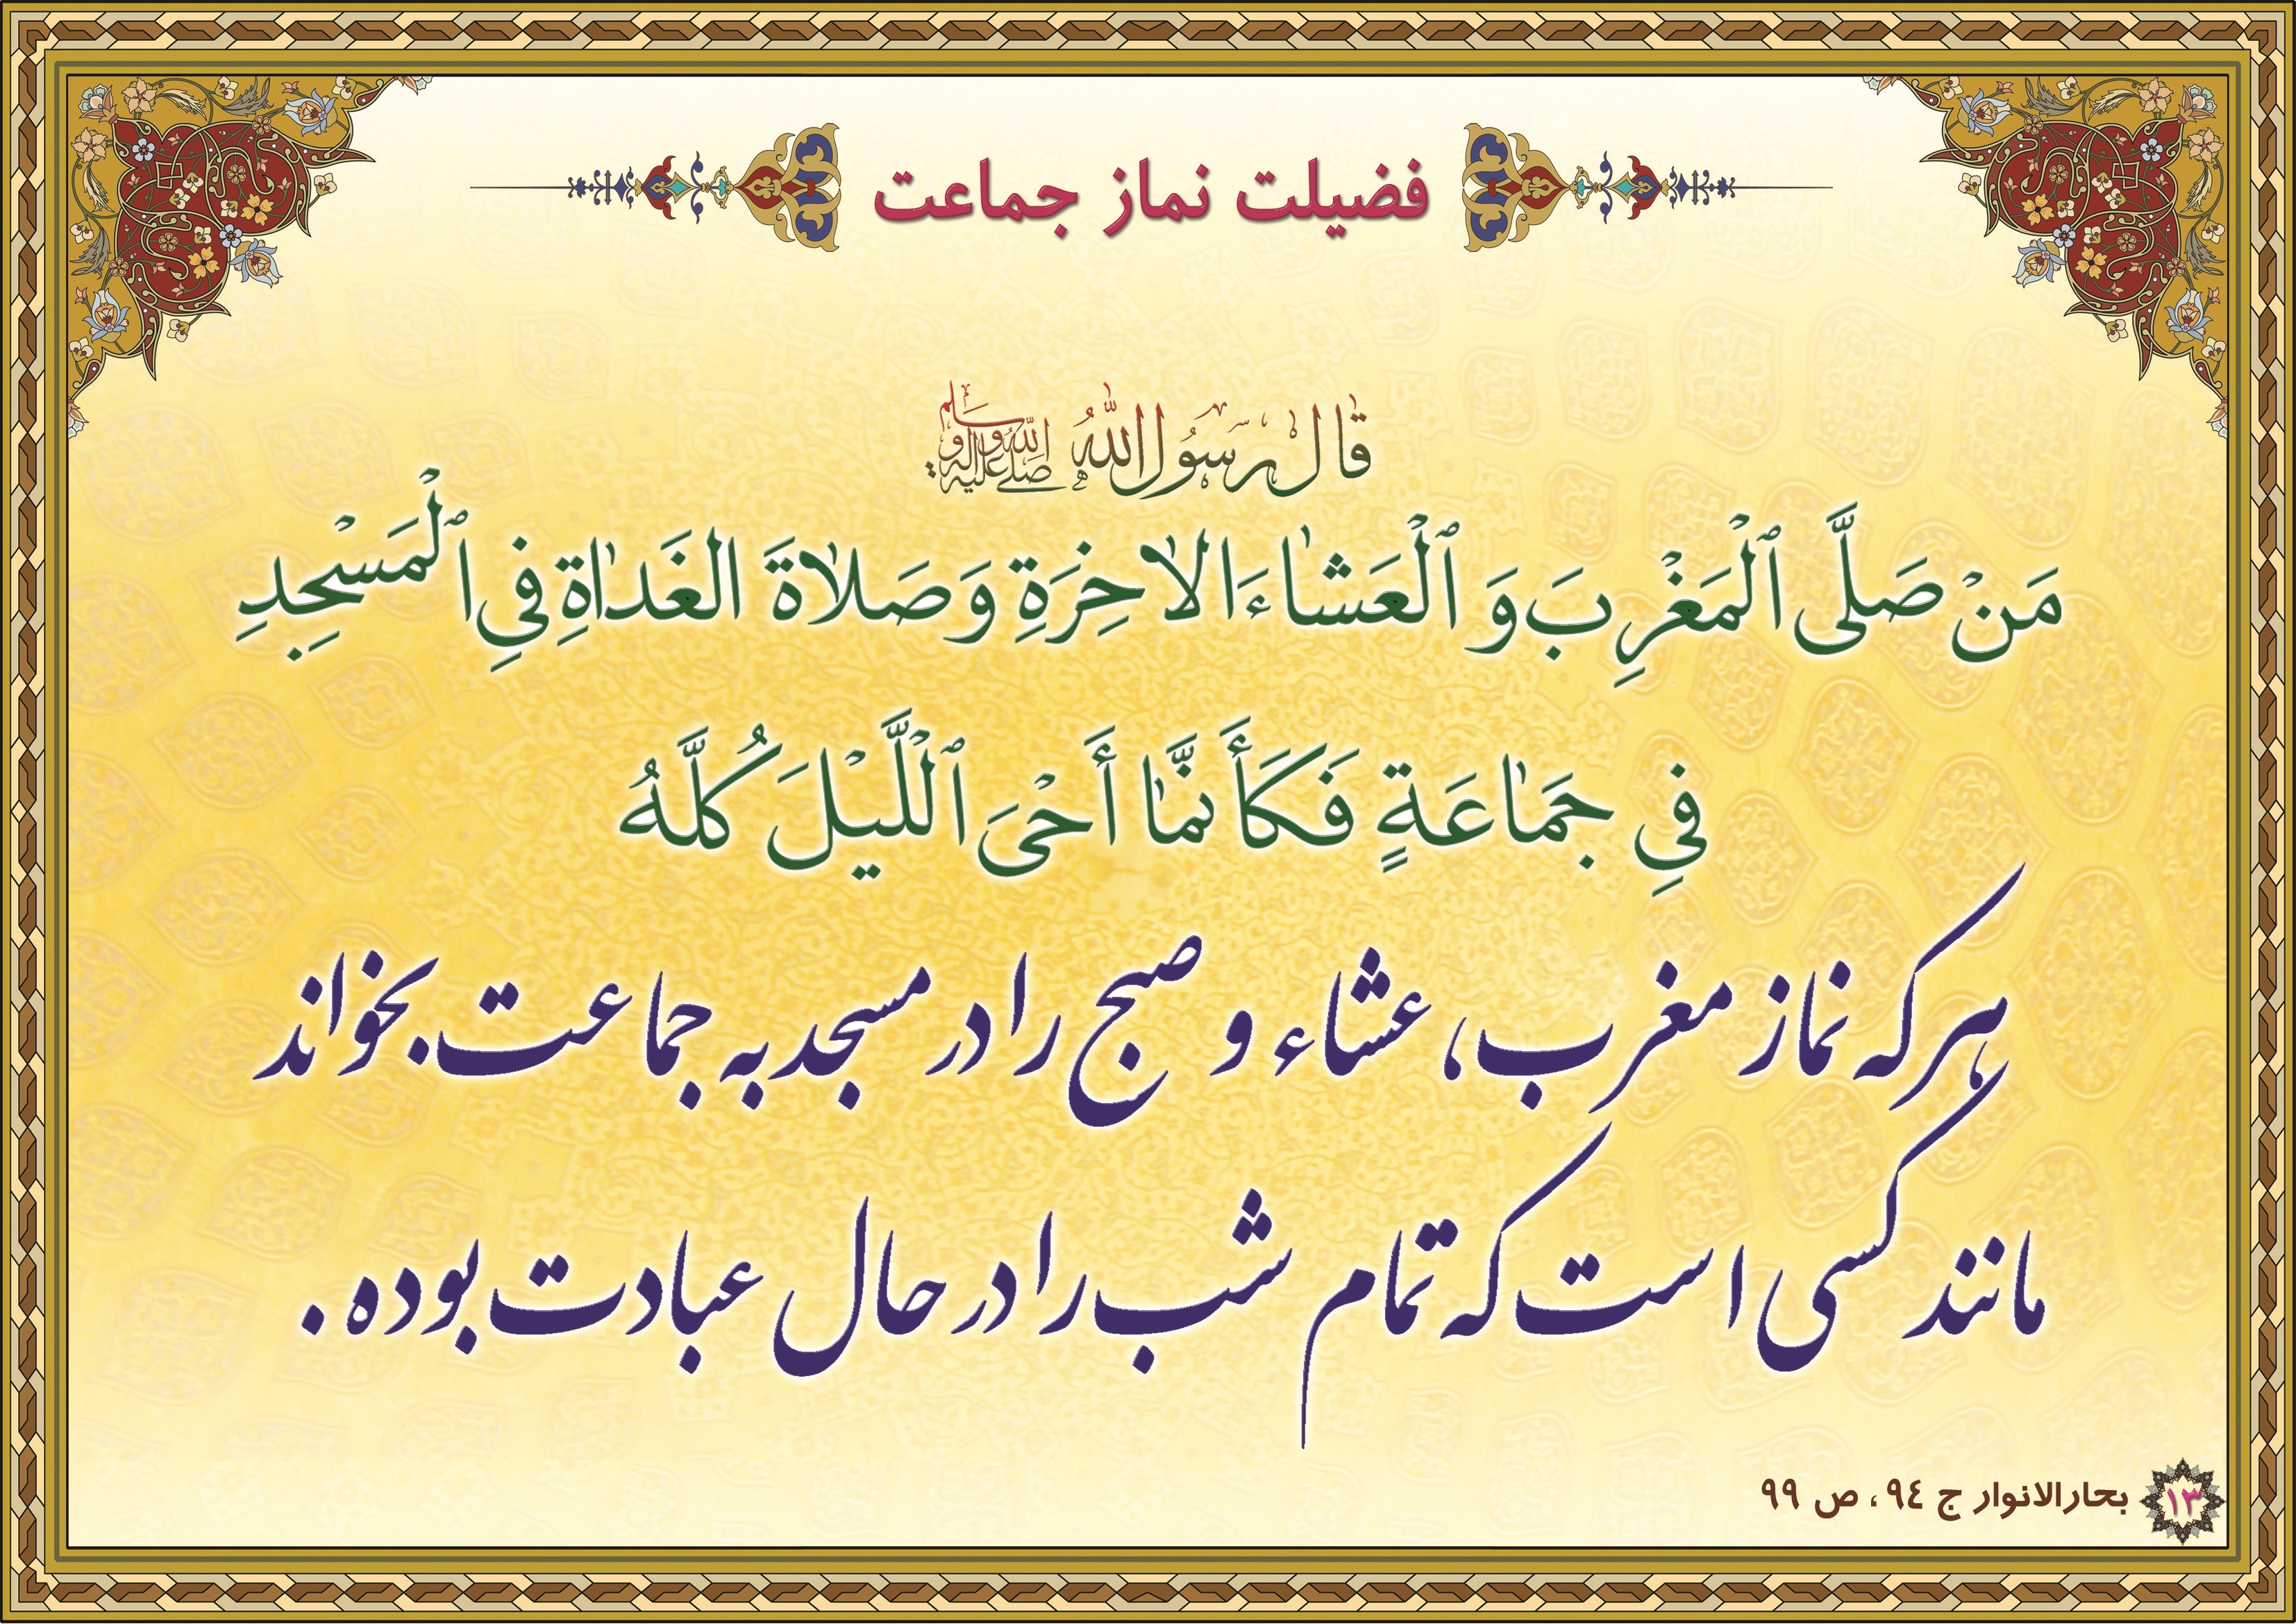 فضیلت نماز جماعت
قال رسول الله صلی الله علیه وآله وسلم
مَنْ صَلَّى ٱلْمَغْرِبَ وَ ٱلْعَشٰاءَ الاٰخِرَةِ وَ صَلاٰةَ الغَدٰاةِ فِي ٱلْمَسْجِدِ
فِي جَمٰاعَةٍ فَكَأَنَّمٰا أَحْيَ ٱللَّيْلَ كُلَّهُ
هر که نماز مغرب، عشاء و صبح را در مسجد به جماعت بخواند
مانند کسی است که تمام شب را در حال عبادت بوده .
١٣ بحارالانوار ج ٩٤، ص ٩٩